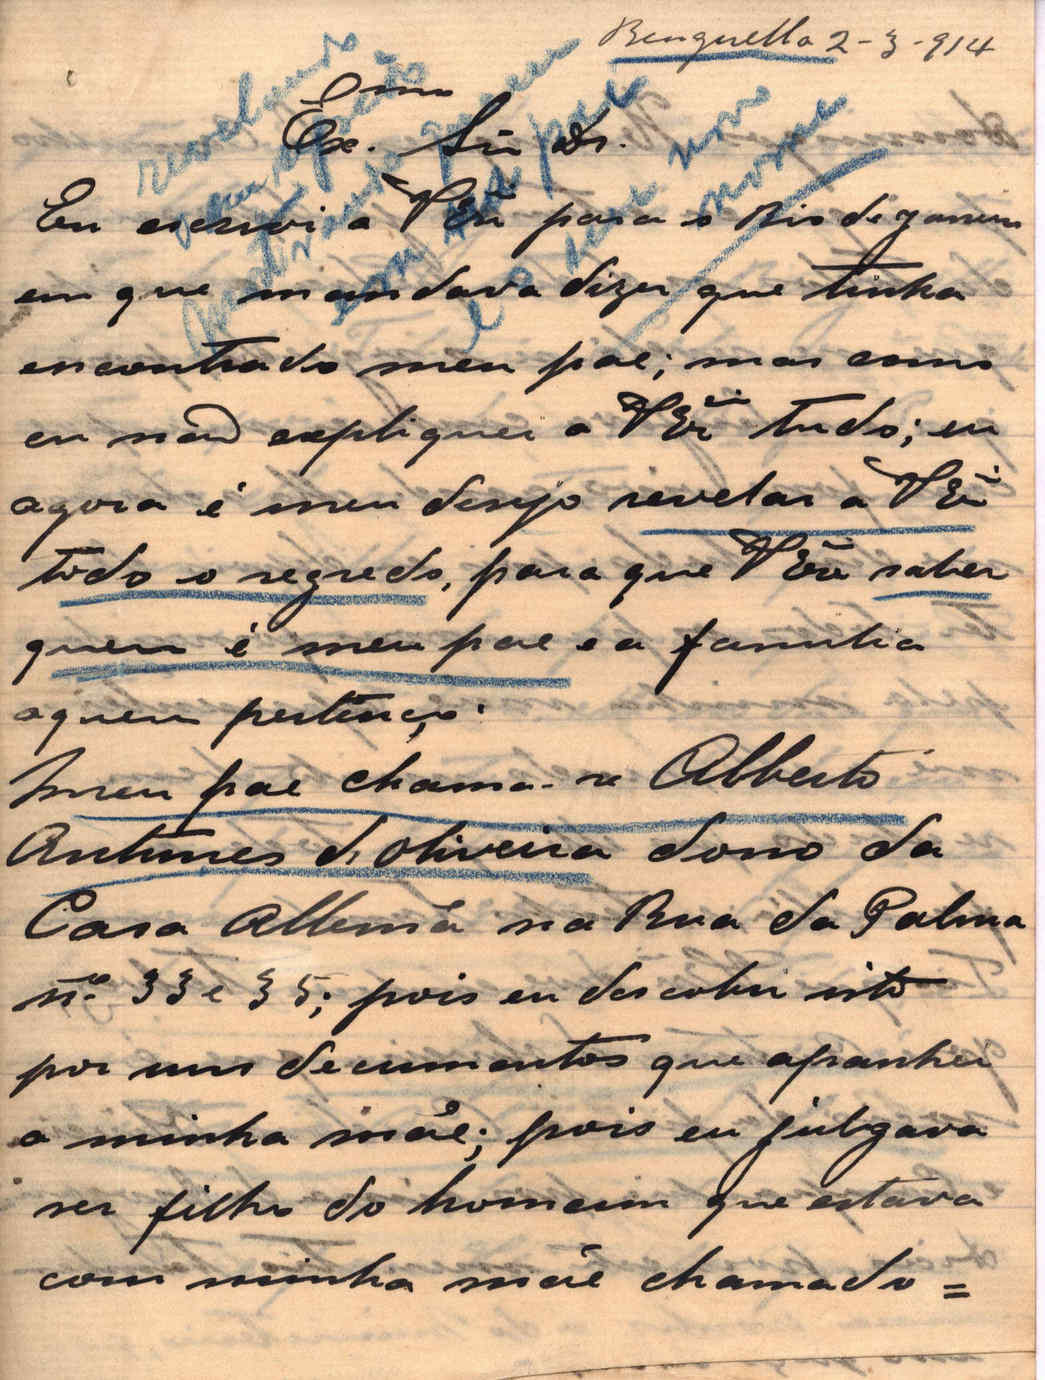 Benguella 2-3-914
Exmo. Snr. Dr.
Eu escrevi a VExa para o Rio de Janeiro
em que mandava dizer que tinha
encontrado meu pae; mas como
eu não expliquei a VExa tudo; eu
agora é meu desejo revelar a VExa
todo o segredo, para que VExa saber
quem é meu pae e a familia
aquem pertenço.
Meu pae chama-se Alberto
Antunes d'Oliveira dono da
Casa Allemã na Rua da Palma
nº. 33 e 35; pois eu descobri isto
por uns documentos que apanhei
a minha mãe; pois eu julgava
ser filho do homem que estava
com minha mãe chamado =
revelando
quem
seu pae
e o seu
nome